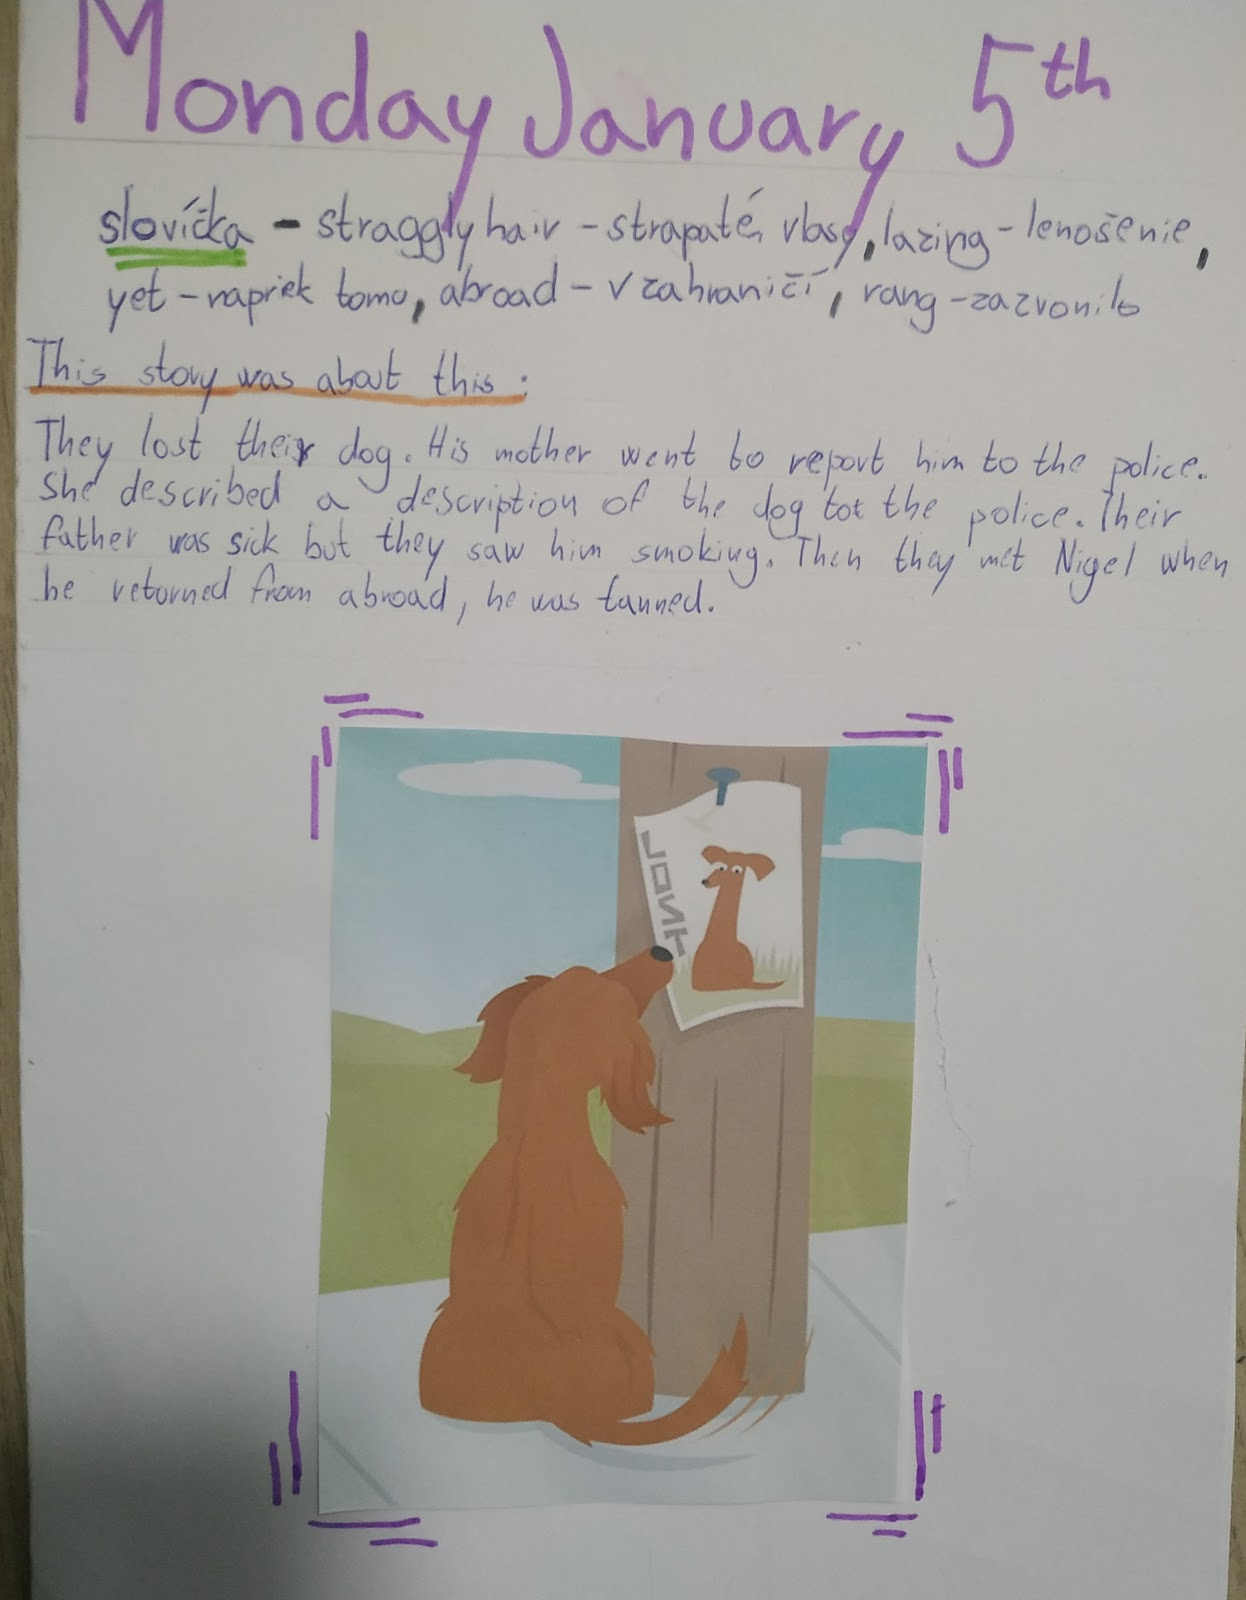 Monday January 5th
slovíčka - straggly hair - strapaté vlasy, lazing - lenošenie,
yet - napriek tomu, abroad - v zahraničí, rang - zazvonilo
This story was about this:
They lost their dog. His mother went to report him to the police.
She described a description of the dog tot the police. Their
father was sick but they saw him smoking. Then they met Nigel when
he returned from abroad, he was tanned.
LOST